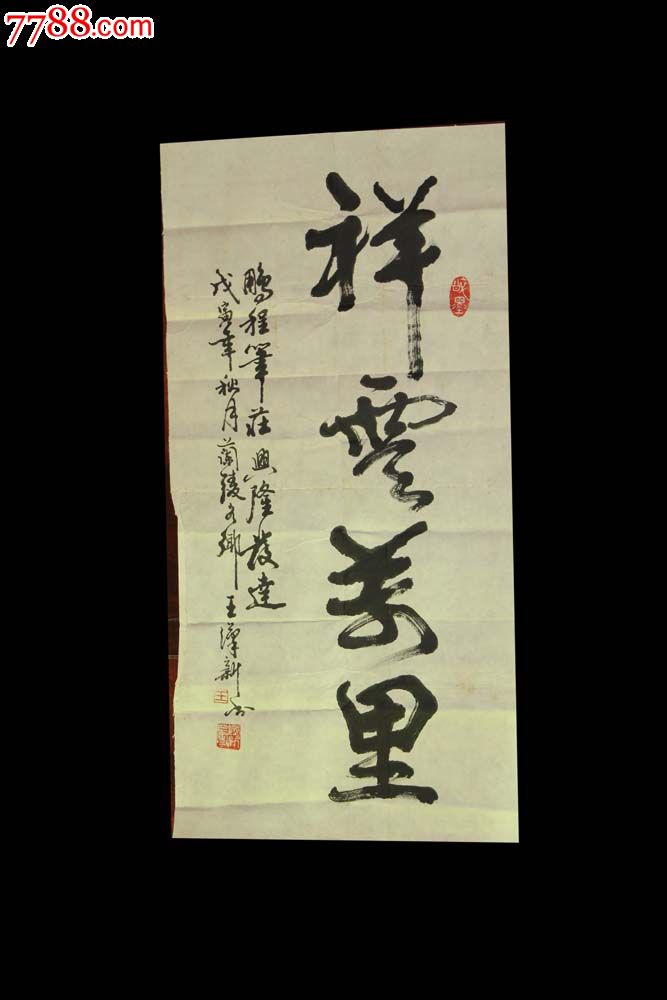 7788.com
祥雲萬里
鵬程筆莊興隆發達
戊寅年秋月蘭陵文鄉王漢新書